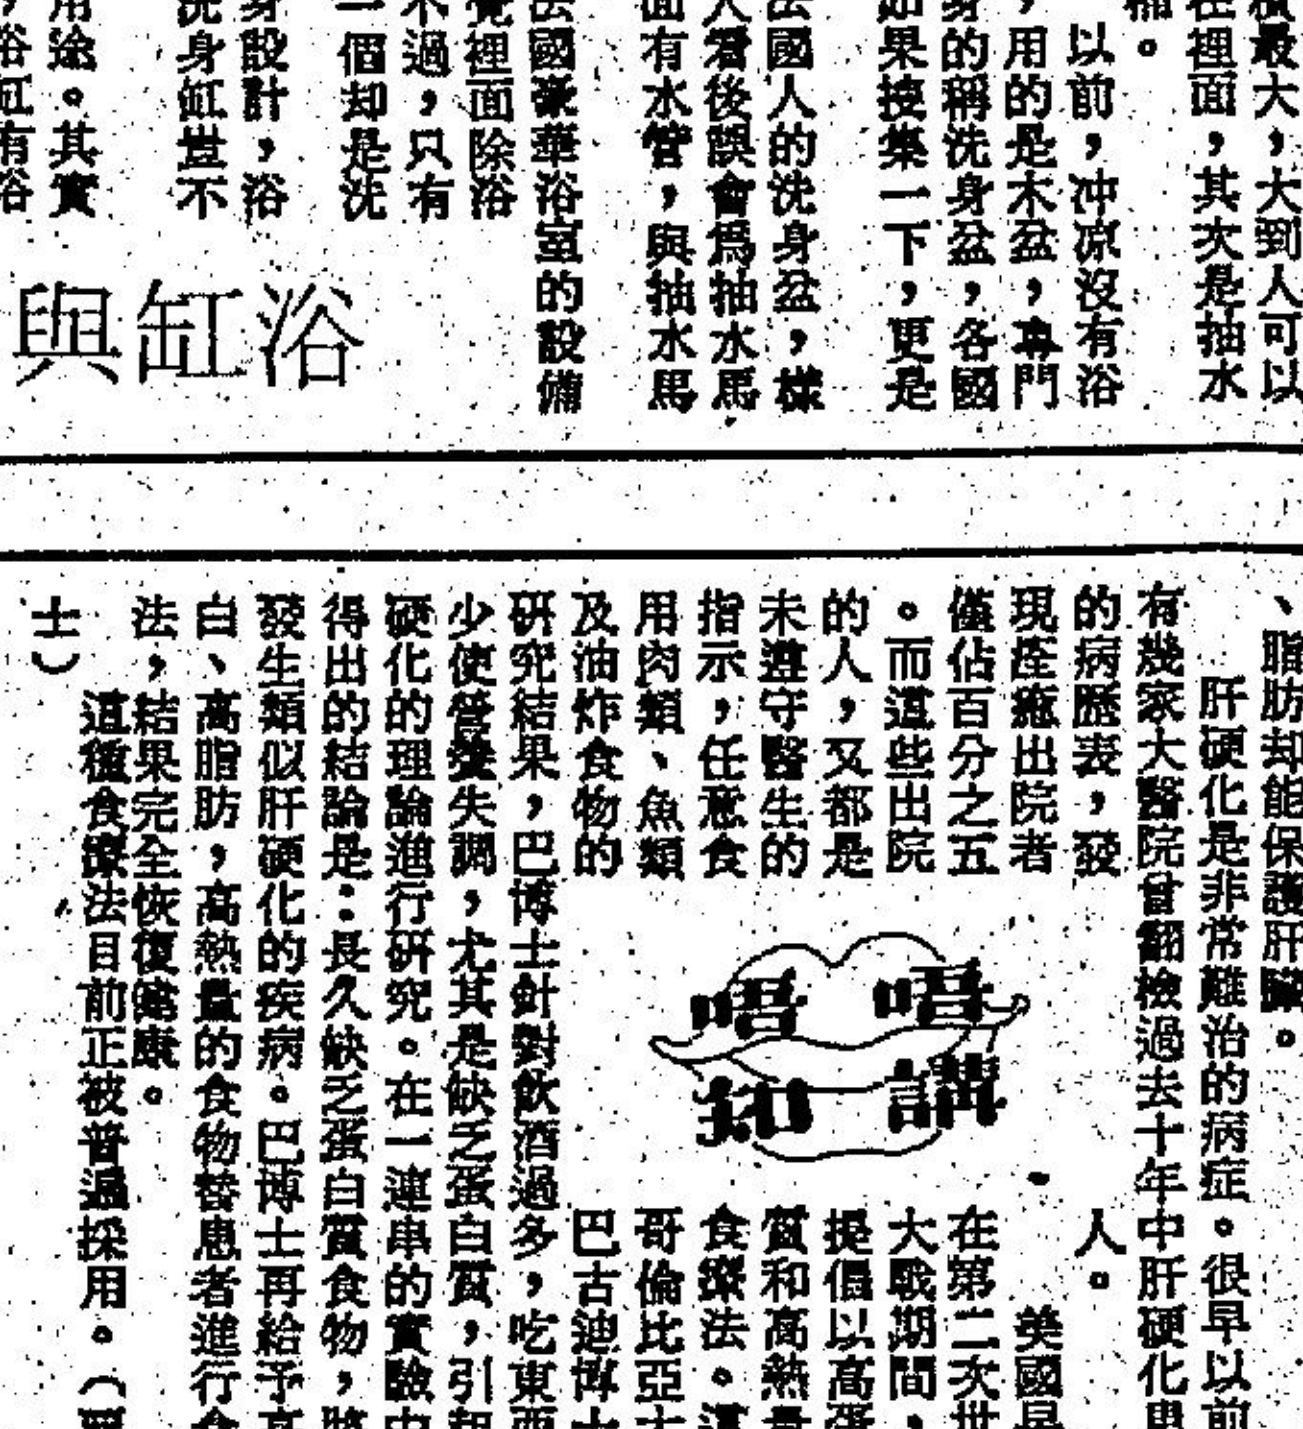 最大，大到人可以
在裡面，其次是抽水
桶。
以前，冲凉沒有浴
，用的是木盆，專門
身的稱洗身盆，各國
如果搜集一下，更是
法國人的洗身盆，樣
人看後誤會爲抽水馬
面有水管，與抽水馬
法國豪華浴室的設備
覺裡面除浴
不過，只有
一個却是洗
身設計，浴
洗身缸豈不
用途。其實
，浴缸有浴
浴缸與
、脂肪却能保護肝臟。
肝硬化是非常難治的病症。很早以前
有幾家大醫院曾翻檢過去十年中肝硬化患
的病歷表，發
現痊癒出院者
僅佔百分之五
。而這些出院
的人，又都是
未遵守醫生的
指示，任意食
用肉類、魚類
及油炸食物的
唔講
唔知
人。
美國是
在第二次世
大戰期間，
提倡以高蛋
質和高熱量
食療法。這
哥倫比亞大
巴古迪博士
研究結果，巴博士針對飲酒過多，吃東西
少使營養失調，尤其是缺乏蛋白質，引起
硬化的理論進行研究。在一連串的實驗中
得出的結論是：長久缺乏蛋白質食物，將
發生類似肝硬化的疾病。巴博士再給予高
白、高脂肪，高熱量的食物替患者進行食
法，結果完全恢復健康。
這種食療法目前正被普遍採用。（
士）